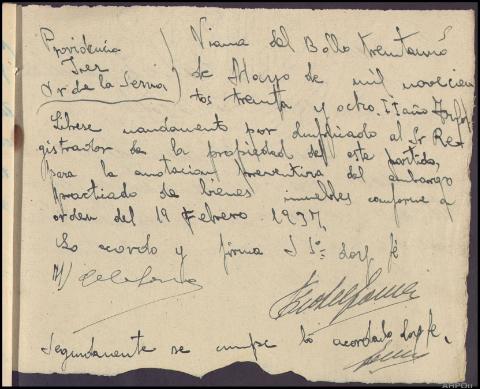 Providencia
Juez
Sr de la Serna
Viana del Bollo treintauno
de Mayo de mil novecien
tos treinta y ocho. II año
Librese mandamiento por duplicado al Sr Re
gistrador de la propiedad de este partido,
para la anotacion preventiva del embargo
practicado de bienes inmuebles conforme a
orden del 19 Febrero 1937,
Lo acordo y firma S Sª: doy fé
M/ de la Serna
Seguidamente se cumple lo acordado doy fe,
AHPOu